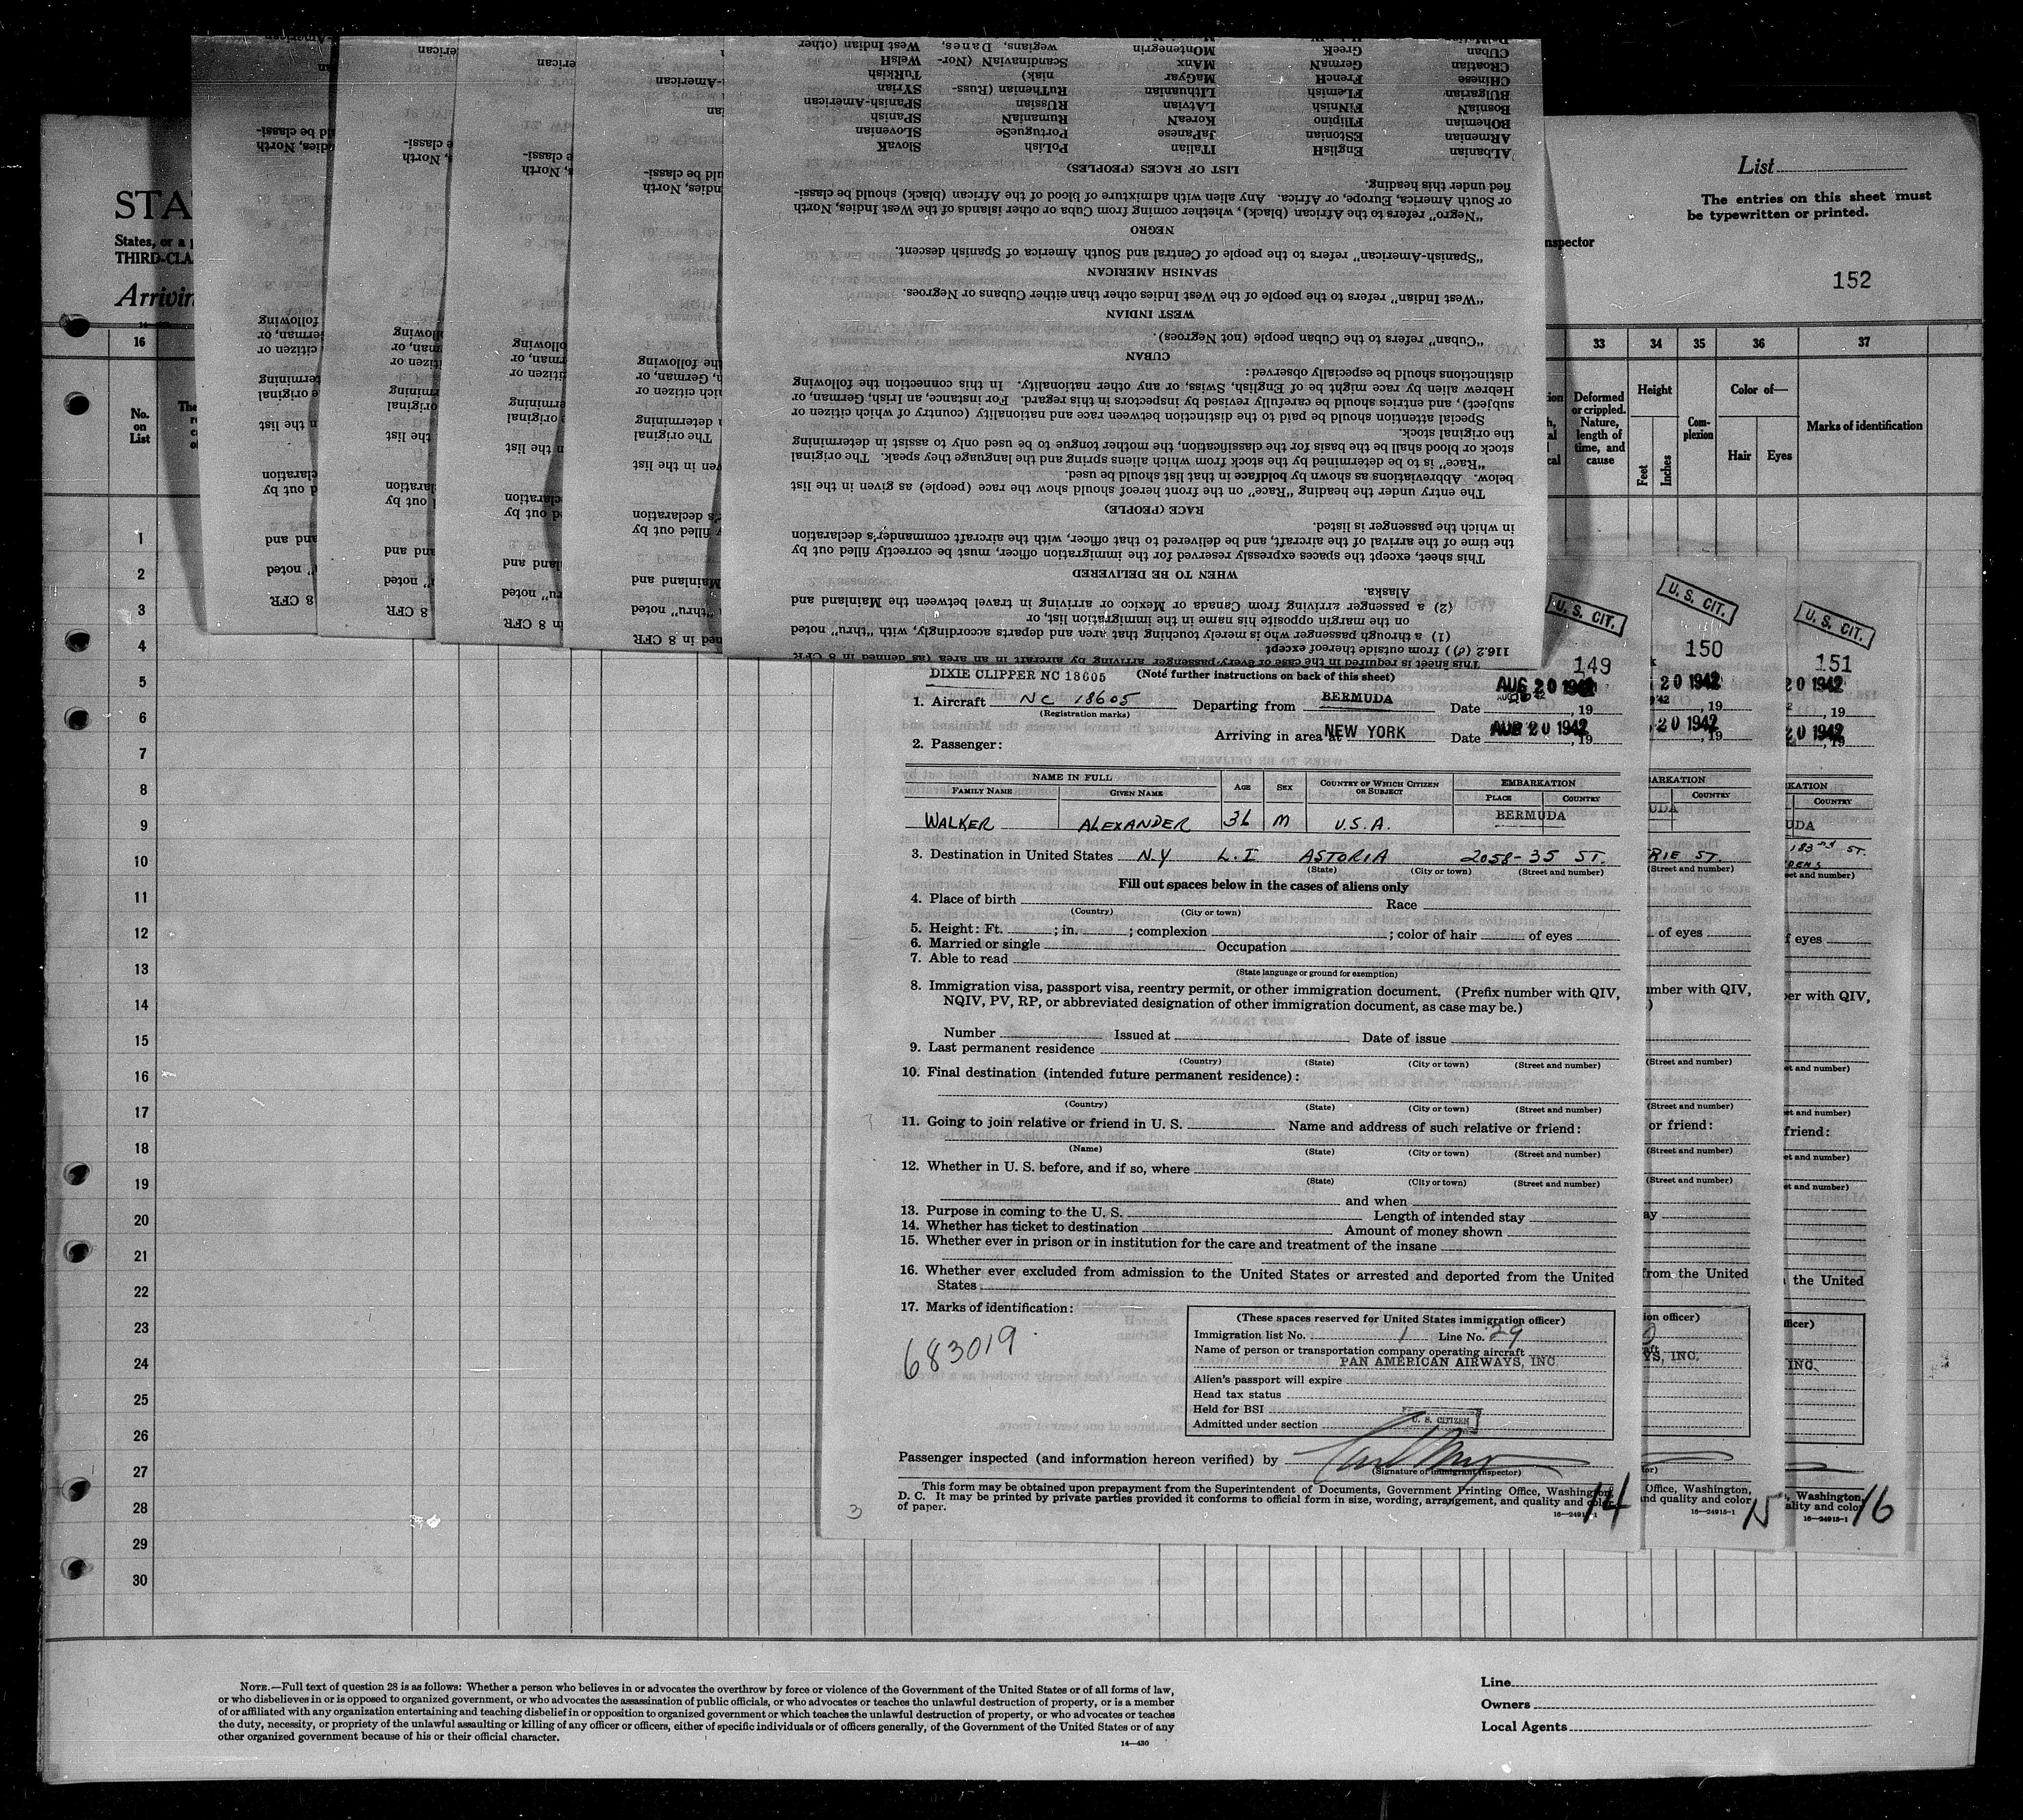 STA
States, or a
THIRD-CLA
Arrivin
List
The entries on this sheet must
be typewritten or printed.
nspector
152
16
No.
on
List
33 34 35 36 37
Deformed
or crippled.
Nature,
length of
time, and
cause
Height
Feet
Inches
Com-
plexion
Color of—
Hair Eyes
Marks of identification
1
2
3
4
5
6
7
8
9
10
11
12
13
14
15
16
17
18
19
20
21
22
23
24
25
26
27
28
29
30
This sheet is required in the case of every passenger arriving by aircraft in an area (as defined in 8 CFR
116.2 (d)) from outside thereof except
(1) a through passenger who is merely touching that area and departs accordingly, with "thru" noted
on the margin opposite his name in the immigration list, or
(2) a passenger arriving from Canada or Mexico or arriving in travel between the Mainland and
Alaska.
WHEN TO BE DELIVERED
This sheet, except the spaces expressly reserved for the immigration officer, must be correctly filled out by
the time of the arrival of the aircraft, and be delivered to that officer, with the aircraft commander's declaration
in which the passenger is listed.
RACE (PEOPLE)
The entry under the heading "Race" on the front hereof should show the race (people) as given in the list
below. Abbreviations as shown by boldface in that list should be used.
"Race" is to be determined by the stock from which aliens spring and the language they speak. The original
stock or blood shall be the basis for the classification, the mother tongue to be used only to assist in determining
the original stock.
Special attention should be paid to the distinction between race and nationality (country of which citizen or
subject), and entries should be carefully revised by inspectors in this regard. For instance, an Irish, German, or
Hebrew alien by race might be of English, Swiss, or any other nationality. In this connection the following
distinctions should be especially observed:
CUBAN
"Cuban" refers to the Cuban people (not Negroes).
WEST INDIAN
"West Indian" refers to the people of the West Indies other than either Cubans or Negroes.
SPANISH AMERICAN
"Spanish-American" refers to the people of Central and South America of Spanish descent.
NEGRO
"Negro" refers to the African (black), whether coming from Cuba or other islands of the West Indies, North
or South America, Europe, or Africa. Any alien with admixture of blood of the African (black) should be classi-
fied under this heading.
LIST OF RACES (PEOPLES)
ALbanian EnglisH ITalian PoLish SlovaK
ARmenian EStonian JaPanese PortugueSe SLOvenian
BOhemian FIlipino KoreaN RumaniaN SPanish
BosniaN FINnish LAtvian RUssian SPanish-American
BUlgarian FLemish LIthuanian RuThenian (Russ- SYrian
CHinese FrencH MaGyar niak) TuRkish
CRoatian GermaN MAnx ScandinaviaN (Nor- WelsH
CUban GreeK MOntenegrin wegians, Danes, West Indian (other
DIXIE CLIPPER NC 18605 (Note further instructions on back of this sheet)
1. Aircraft NC 18605 Departing from BERMUDA Date AUG 20 1942, 19
(Registration marks)
Arriving in area at NEW YORK Date AUG 20 1942, 19
2. Passenger:
149
NAME IN FULL AGE SEX COUNTRY OF WHICH CITIZEN OR SUBJECT EMBARKATION
FAMILY NAME GIVEN NAME PLACE COUNTRY
WALKER ALEXANDER 36 M U.S.A. BERMUDA
3. Destination in United States N.Y L.I ASTORIA 2058-35 ST.
(State) (City or town) (Street and number)
Fill out spaces below in the cases of aliens only
4. Place of birth Race
(Country) (City or town)
5. Height: Ft. ; in. ; complexion ; color of hair of eyes
6. Married or single Occupation
7. Able to read
(State language or ground for exemption)
8. Immigration visa, passport visa, reentry permit, or other immigration document. (Prefix number with QIV,
NQIV, PV, RP, or abbreviated designation of other immigration document, as case may be.)
Number Issued at Date of issue
9. Last permanent residence
(Country) (State) (City or town) (Street and number)
10. Final destination (intended future permanent residence):
(Country) (State) (City or town) (Street and number)
11. Going to join relative or friend in U. S. Name and address of such relative or friend:
(Name) (State) (City or town) (Street and number)
12. Whether in U. S. before, and if so, where
(State) (City or town) (Street and number)
and when
13. Purpose in coming to the U. S. Length of intended stay
14. Whether has ticket to destination Amount of money shown
15. Whether ever in prison or in institution for the care and treatment of the insane
16. Whether ever excluded from admission to the United States or arrested and deported from the United
States
17. Marks of identification:
683019
(These spaces reserved for United States immigration officer)
Immigration list No. 1 Line No. 29
Name of person or transportation company operating aircraft
PAN AMERICAN AIRWAYS, INC.
Alien's passport will expire
Head tax status
Held for BSI
Admitted under section U. S. CITIZEN
Passenger inspected (and information hereon verified) by
(Signature of immigrant inspector)
This form may be obtained upon prepayment from the Superintendent of Documents, Government Printing Office, Washington,
D. C. It may be printed by private parties provided it conforms to official form in size, wording, arrangement, and quality and color
of paper.
3
14
U. S. CIT.
U. S. CIT.
150
20 1942
, 19
20 1942
, 19
COUNTRY
ST.
(Street and number)
of eyes
umber with QIV,
(Street and number)
(Street and number)
or friend:
(Street and number)
(Street and number)
from the United
ion officer)
YS, INC.
Office, Washington,
nd quality and color
16—24915-1
15
U. S. CIT.
151
20 1942
, 19
20 1942
COUNTRY
UDA
183rd ST.
et and number)
f eyes
er with QIV,
et and number)
et and number)
friend:
et and number)
et and number)
the United
ficer)
INC.
, Washington,
ality and color
16—24915-1
16
NOTE.—Full text of question 28 is as follows: Whether a person who believes in or advocates the overthrow by force or violence of the Government of the United States or of all forms of law,
or who disbelieves in or is opposed to organized government, or who advocates the assassination of public officials, or who advocates or teaches the unlawful destruction of property, or is a member
of or affiliated with any organization entertaining and teaching disbelief in or opposition to organized government or which teaches the unlawful destruction of property, or who advocates or teaches
the duty, necessity, or propriety of the unlawful assaulting or killing of any officer or officers, either of specific individuals or of officers generally, of the Government of the United States or of any
other organized government because of his or their official character.
14—430
Line
Owners
Local Agents